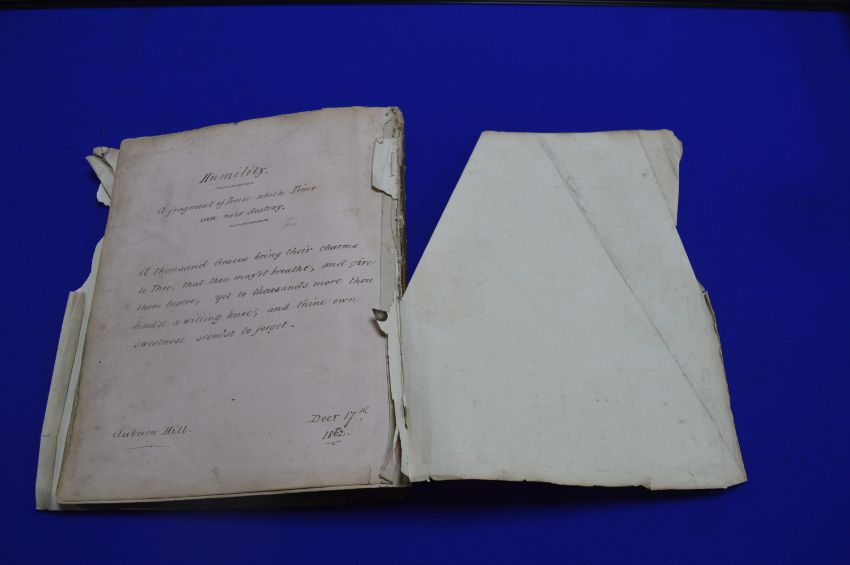 Humility.
A fragment of Praise which Time
can ne'er destroy.
A thousand Graces bring their charms
to Thee, that thou may'st breathe, and give
them lustre, yet to thousands more thou
bindst a willing knee, and thine own
sweetness, seem'st to forget.
Auburn Hill.
Decr 17th
1862.